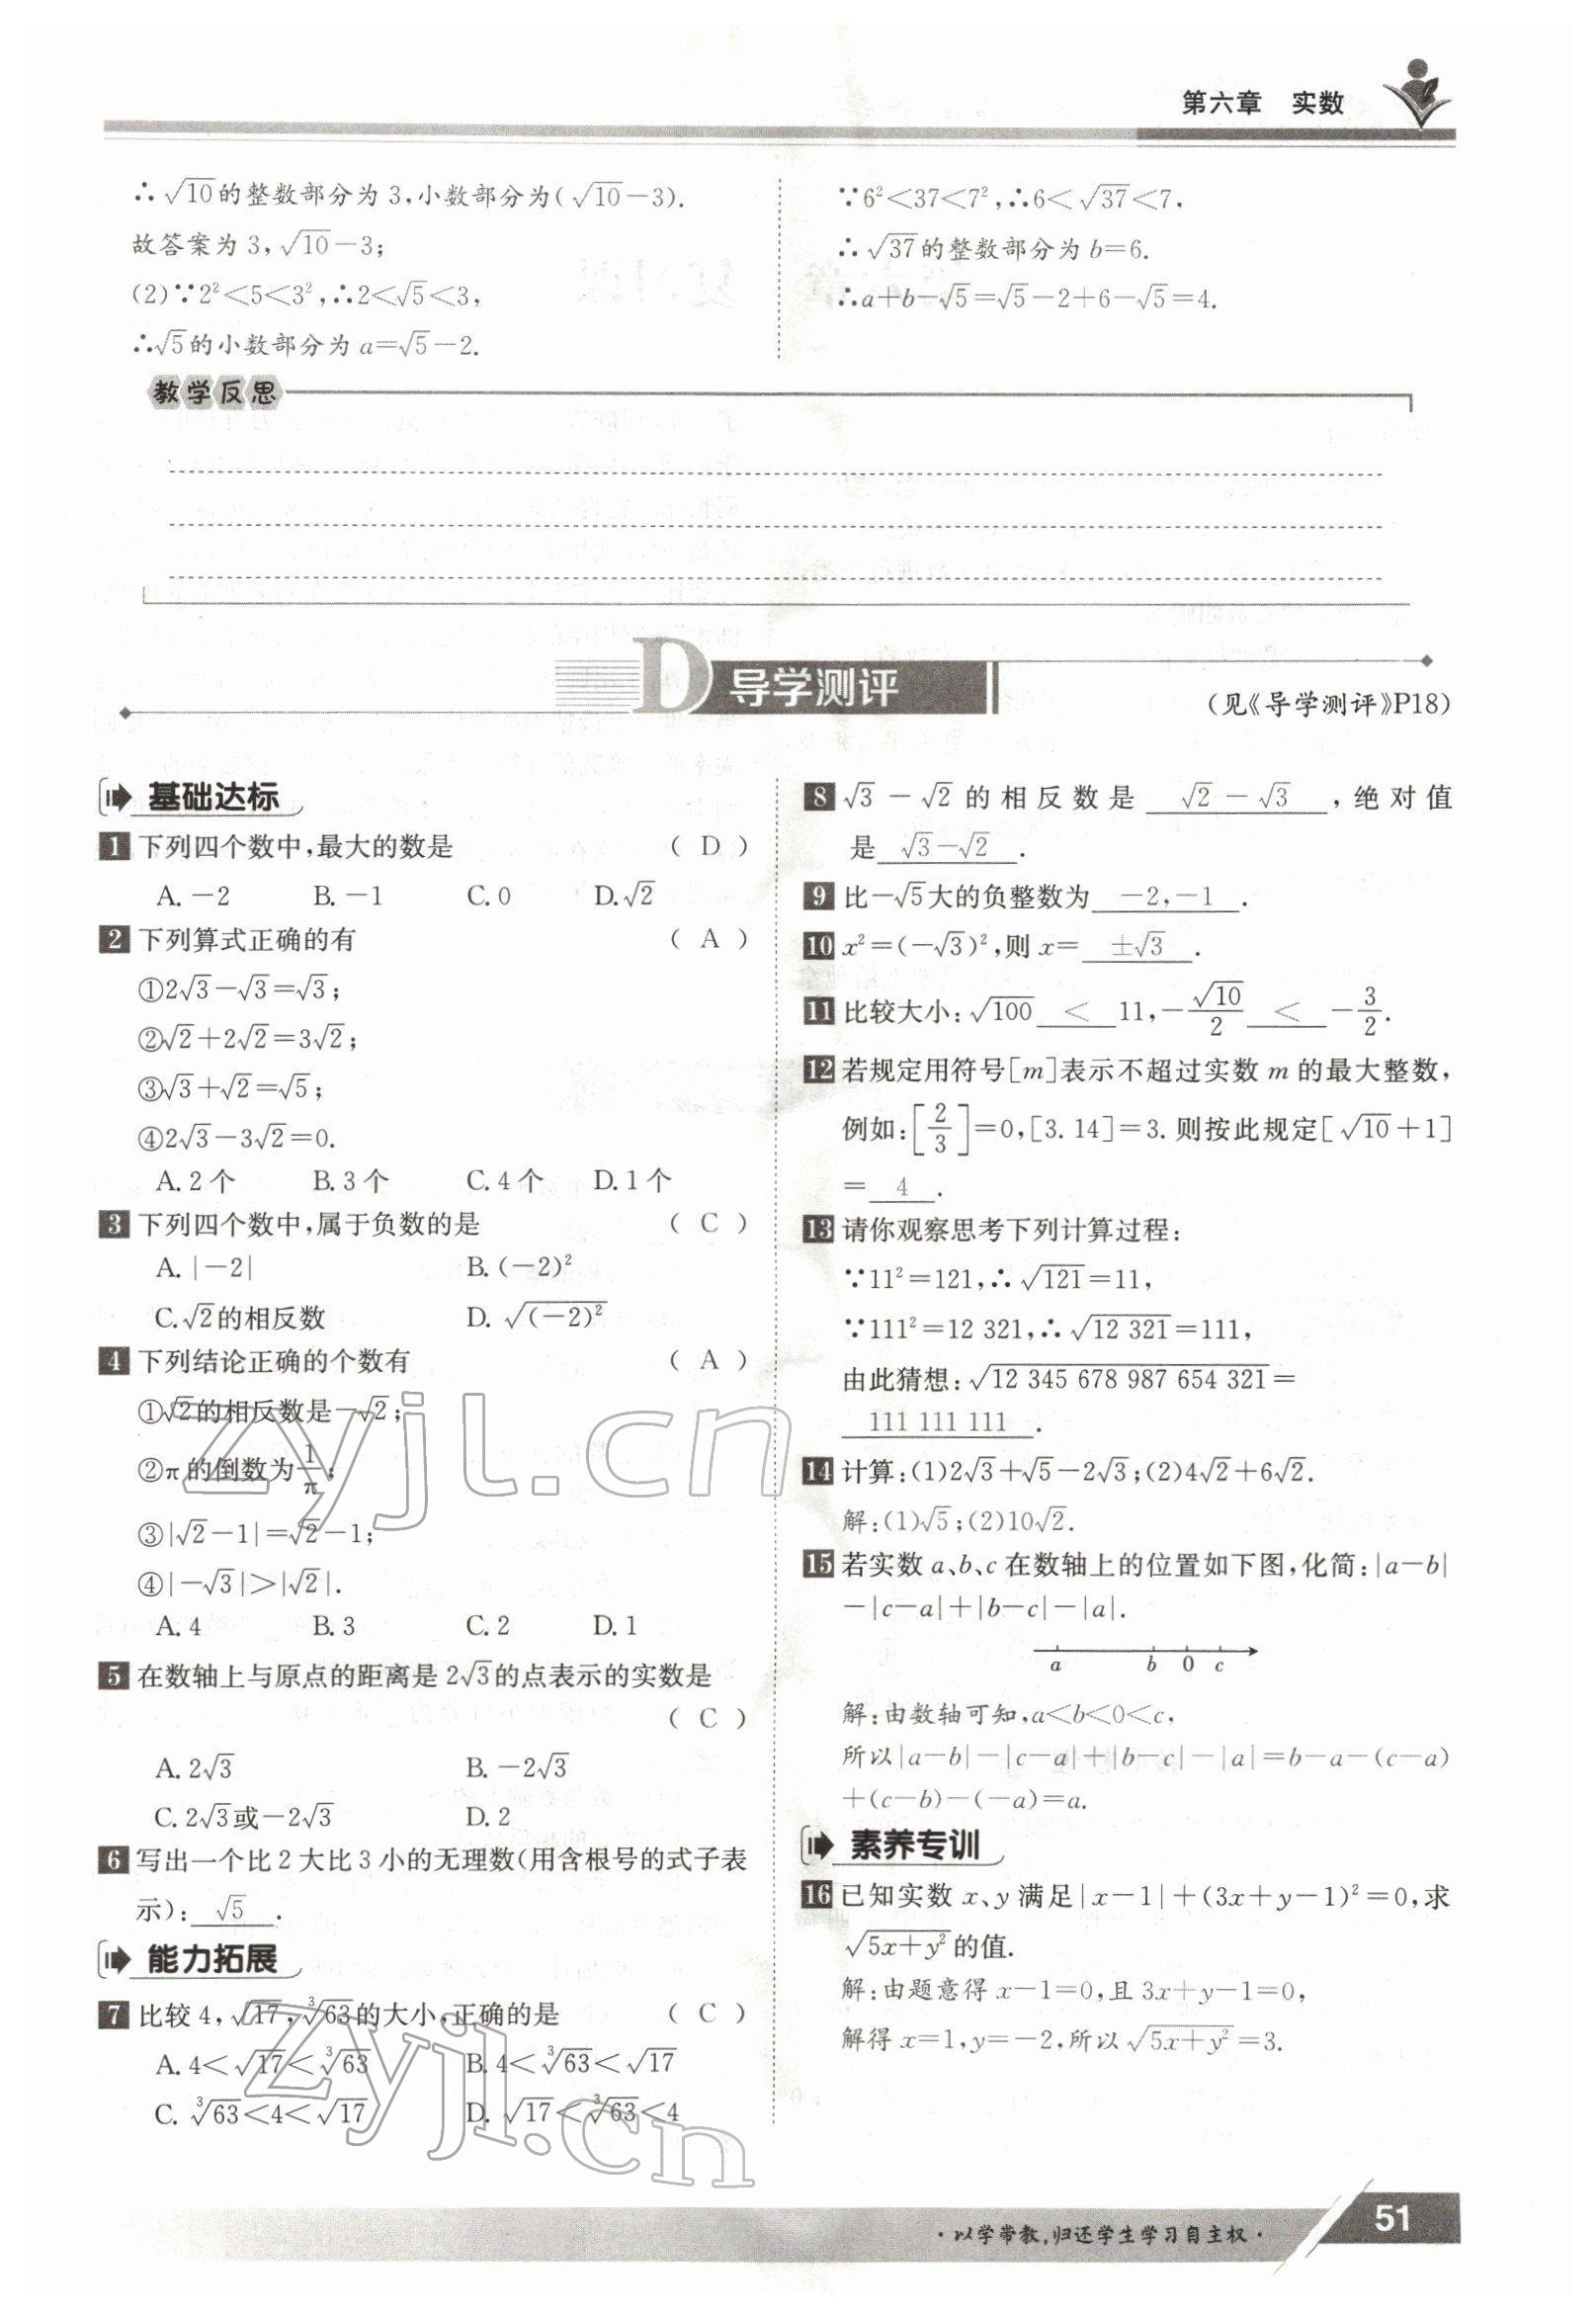 第六章 实数
∴√10的整数部分为3,小数部分为(√10-3).
故答案为3,√10-3;
(2)∵2²<5<3²,∴2<√5<3,
∴√5的小数部分为a=√5-2.
∵6²<37<7²,∴6<√37<7,
∴√37的整数部分为b=6.
∴a+b-√5=√5-2+6-√5=4.
教学反思
D 导学测评
(见《导学测评》P18)
基础达标
1 下列四个数中,最大的数是 ( D )
A.-2 B.-1 C.0 D.√2
2 下列算式正确的有 ( A )
①2√3-√3=√3;
②√2+2√2=3√2;
③√3+√2=√5;
④2√3-3√2=0.
A.2个 B.3个 C.4个 D.1个
3 下列四个数中,属于负数的是 ( C )
A.|-2| B.(-2)²
C.√2的相反数 D.√(-2)²
4 下列结论正确的个数有 ( A )
①√2的相反数是-√2;
②π的倒数为1/π;
③|√2-1|=√2-1;
④|-√3|>|√2|.
A.4 B.3 C.2 D.1
5 在数轴上与原点的距离是2√3的点表示的实数是
( C )
A.2√3 B.-2√3
C.2√3或-2√3 D.2
6 写出一个比2大比3小的无理数(用含根号的式子表
示): √5 .
能力拓展
7 比较4,√17,³√63的大小,正确的是 ( C )
A.4<√17<³√63 B.4<³√63<√17
C.³√63<4<√17 D.√17<³√63<4
8 √3-√2的相反数是 √2-√3 ,绝对值
是 √3-√2 .
9 比-√5大的负整数为 -2,-1 .
10 x²=(-√3)²,则x= ±√3 .
11 比较大小:√100 < 11,-√10/2 < -3/2.
12 若规定用符号[m]表示不超过实数m的最大整数,
例如:[2/3]=0,[3.14]=3.则按此规定[√10+1]
= 4 .
13 请你观察思考下列计算过程:
∵11²=121,∴√121=11,
∵111²=12 321,∴√12 321=111,
由此猜想:√12 345 678 987 654 321=
111 111 111 .
14 计算:(1)2√3+√5-2√3;(2)4√2+6√2.
解:(1)√5;(2)10√2.
15 若实数a、b、c在数轴上的位置如下图,化简:|a-b|
-|c-a|+|b-c|-|a|.
a b 0 c
解:由数轴可知,a<b<0<c,
所以|a-b|-|c-a|+|b-c|-|a|=b-a-(c-a)
+(c-b)-(-a)=a.
素养专训
16 已知实数x、y满足|x-1|+(3x+y-1)²=0,求
√5x+y²的值.
解:由题意得x-1=0,且3x+y-1=0,
解得x=1,y=-2,所以√5x+y²=3.
zyjl.cn
zyjl.cn
·以学带教,归还学生学习自主权·
51